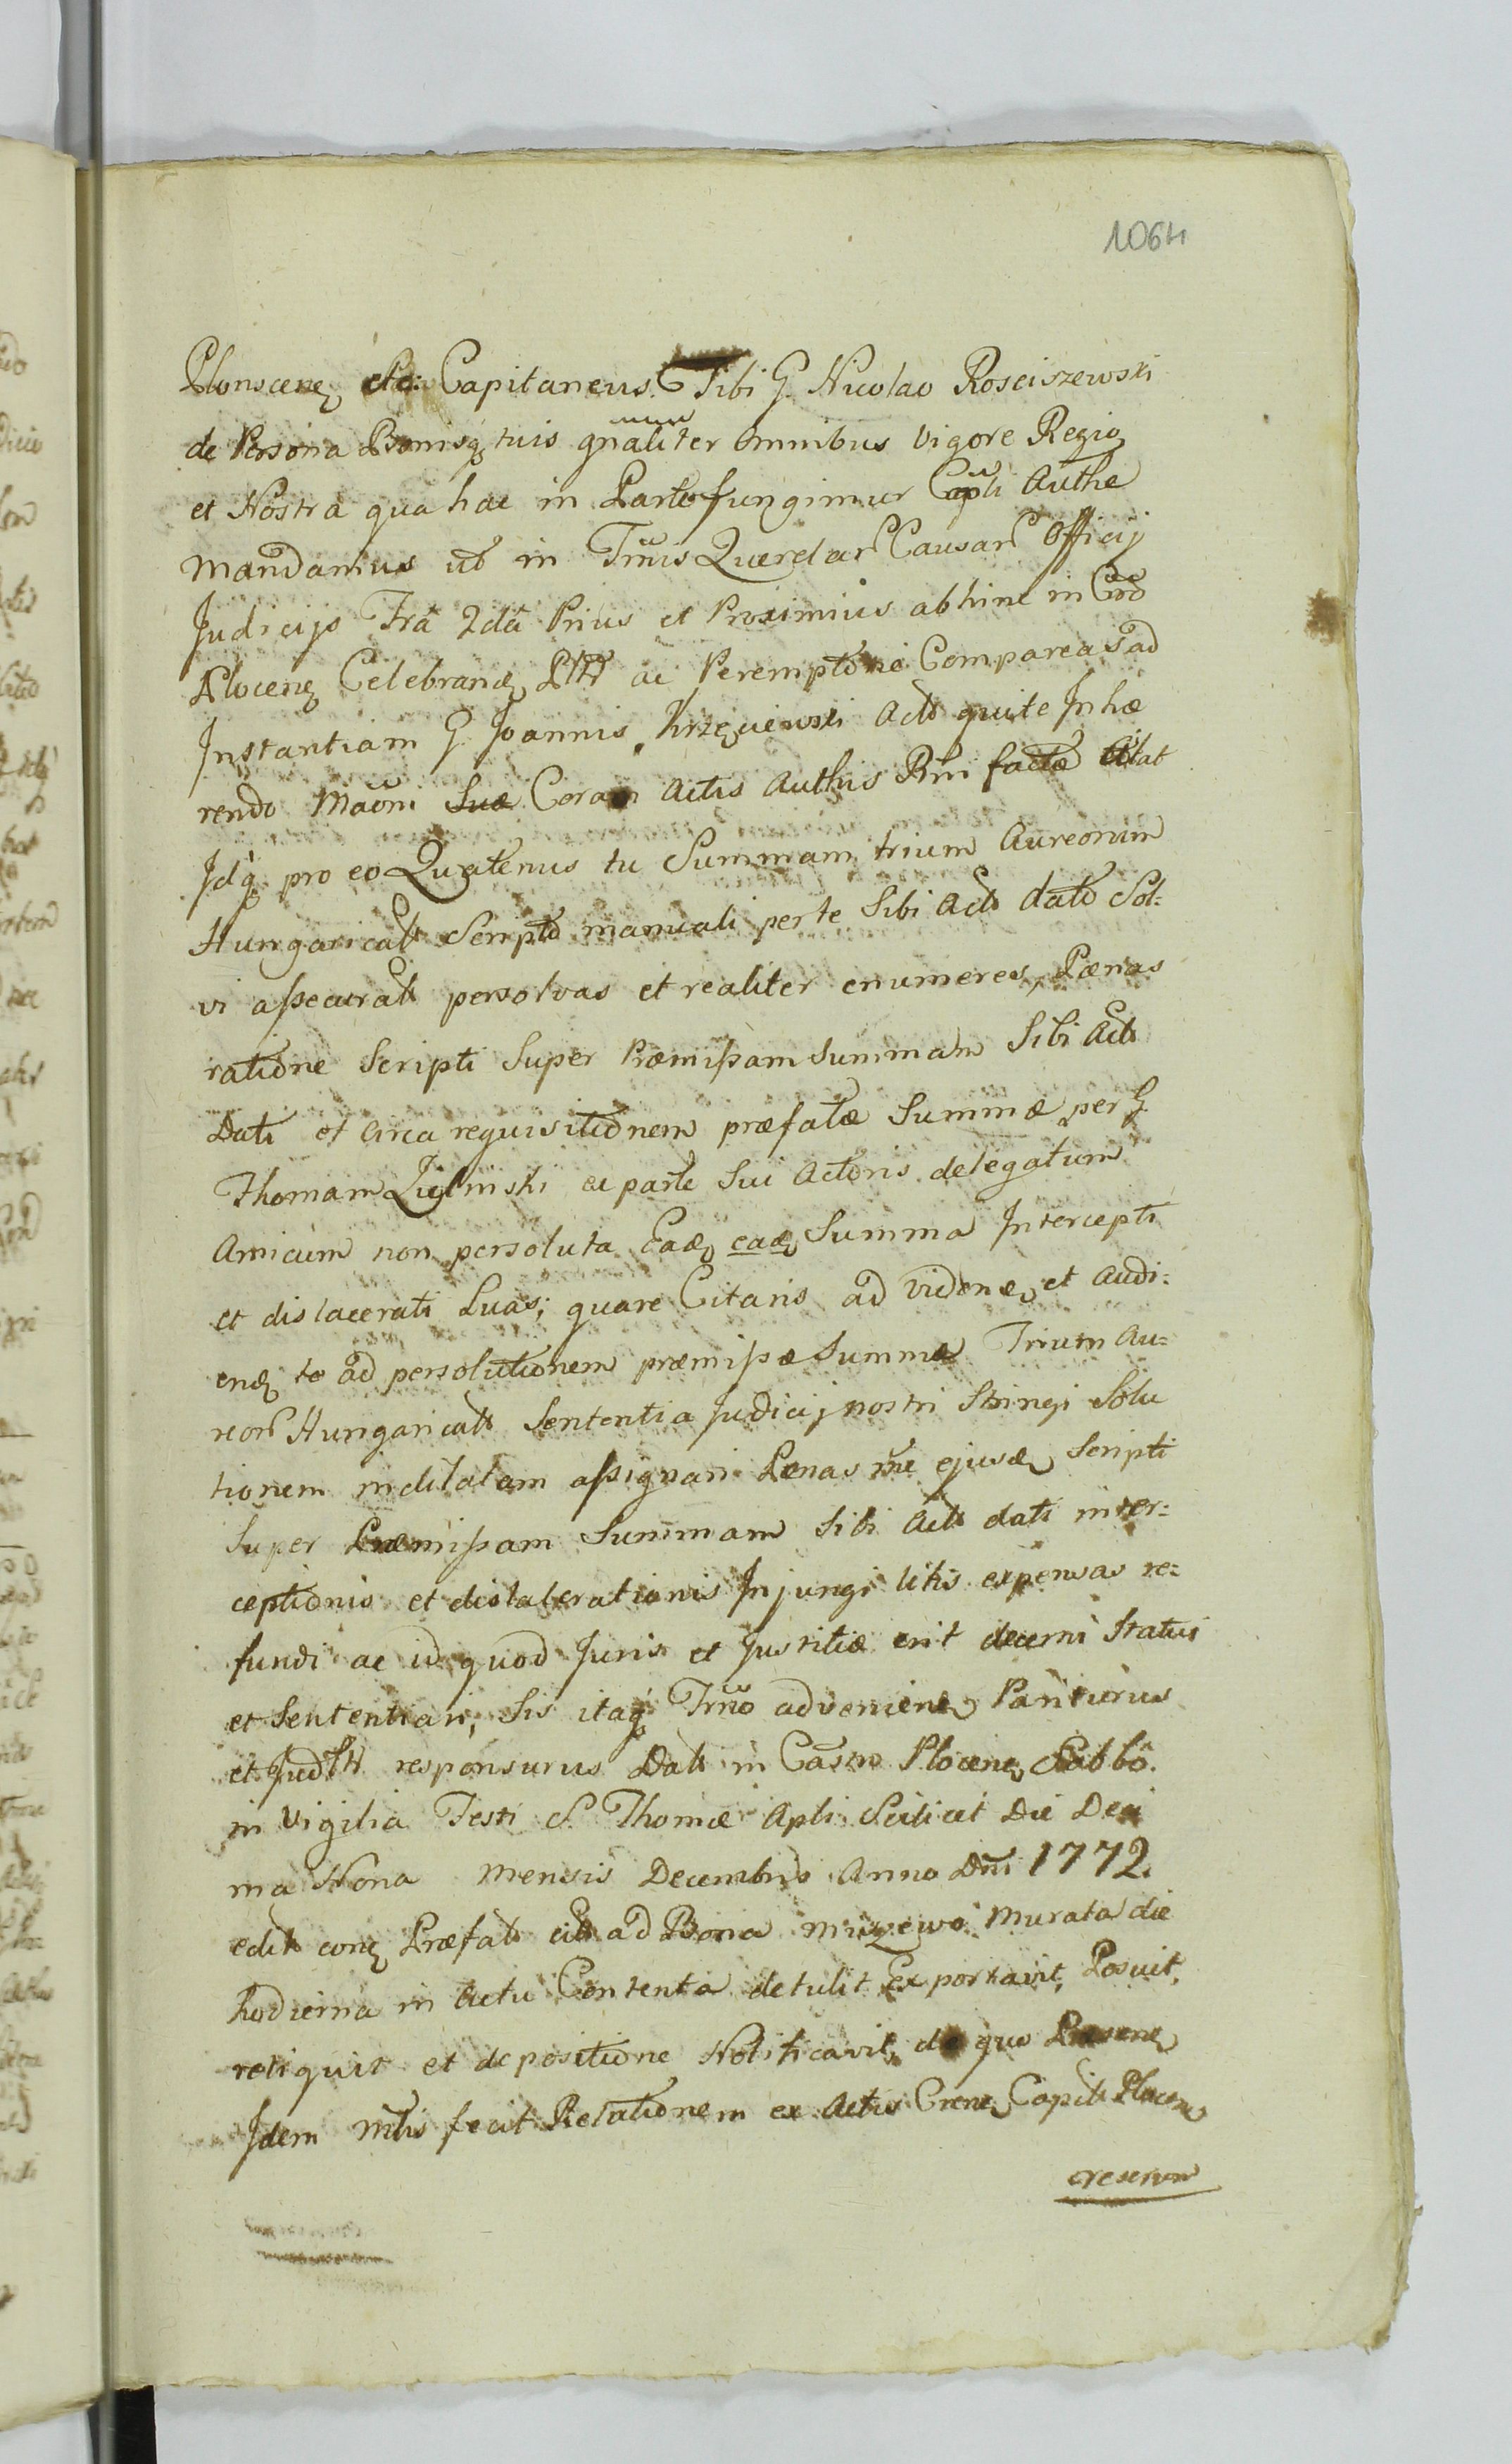 1064
Plonscenę etc: Capitaneus. Tibi G. Nicolao Rosciszewski
de Persona Bonisq, tuis gnaliter omnibus Vigore Regio
et Nostra qua hac in Parte fungimur Capli Authe
mandamus ut in Trnis Querelar Causar Officij
Judicijs Fra 2da Prius et Proximius abhinc in Cro
Plocenę Celebrandę Pltr ac Peremptorie Compareas ad
Instantiam G. Joannis Krzęciewski Acto qui te Inhæ
rendo Maoni Suæ Coram Actis Authis Pni factæ Citat
Idq, pro eo Quatenus tu Summam trium Aureorum
Hungaricalt Scripto manuali per te Sibi Acto dato Sol-
vi assecurat persolvas et realiter enumeres, Pænas
ratione Scripti Super Præmissam Summam Sibi Acto
Dati et circa requisitionem præfatæ Summæ per G.
Thomam Ziglinski ex parte Sui Actoris delegatum
Amicum non persoluta Eadę eadę Summa Intercepti
et dislacerati Luas; quare Citaris ad videndę et Audi-
endę te ad persolutionem præmissæ Summæ Trium Au-
reor Hungaricalt Sententia Judicij nostri Stringi Solu
tionem indilatam assignari Pænas rne ejusdę Scripti
Super Præmissam Summam Sibi Acto dati inter-
ceptionis et dislacerationis Injungi litis expensas re-
fundi ac id quod Juris et Justitiæ erit decerni Statui
et Sententiari, Sis itaq, Trno advenienę Pariturus
et Judltr responsurus Datt in Castro Plocenę Sabbô.
in Vigilia Festi S. Thomæ Apli Scilicet Die Deci
ma Nona Mensis Decembris Anno Dni 1772.
edit conę Præfatt citt ad Bona Muzewo Murata die
hodierna in Actu Contenta detulit Exportavit, Posuit,
reliquit et depositione Notificavit, de quo Præsenę
Idem Mtlis fecit Relationem ex Actis Crenę Capitli Plocenę